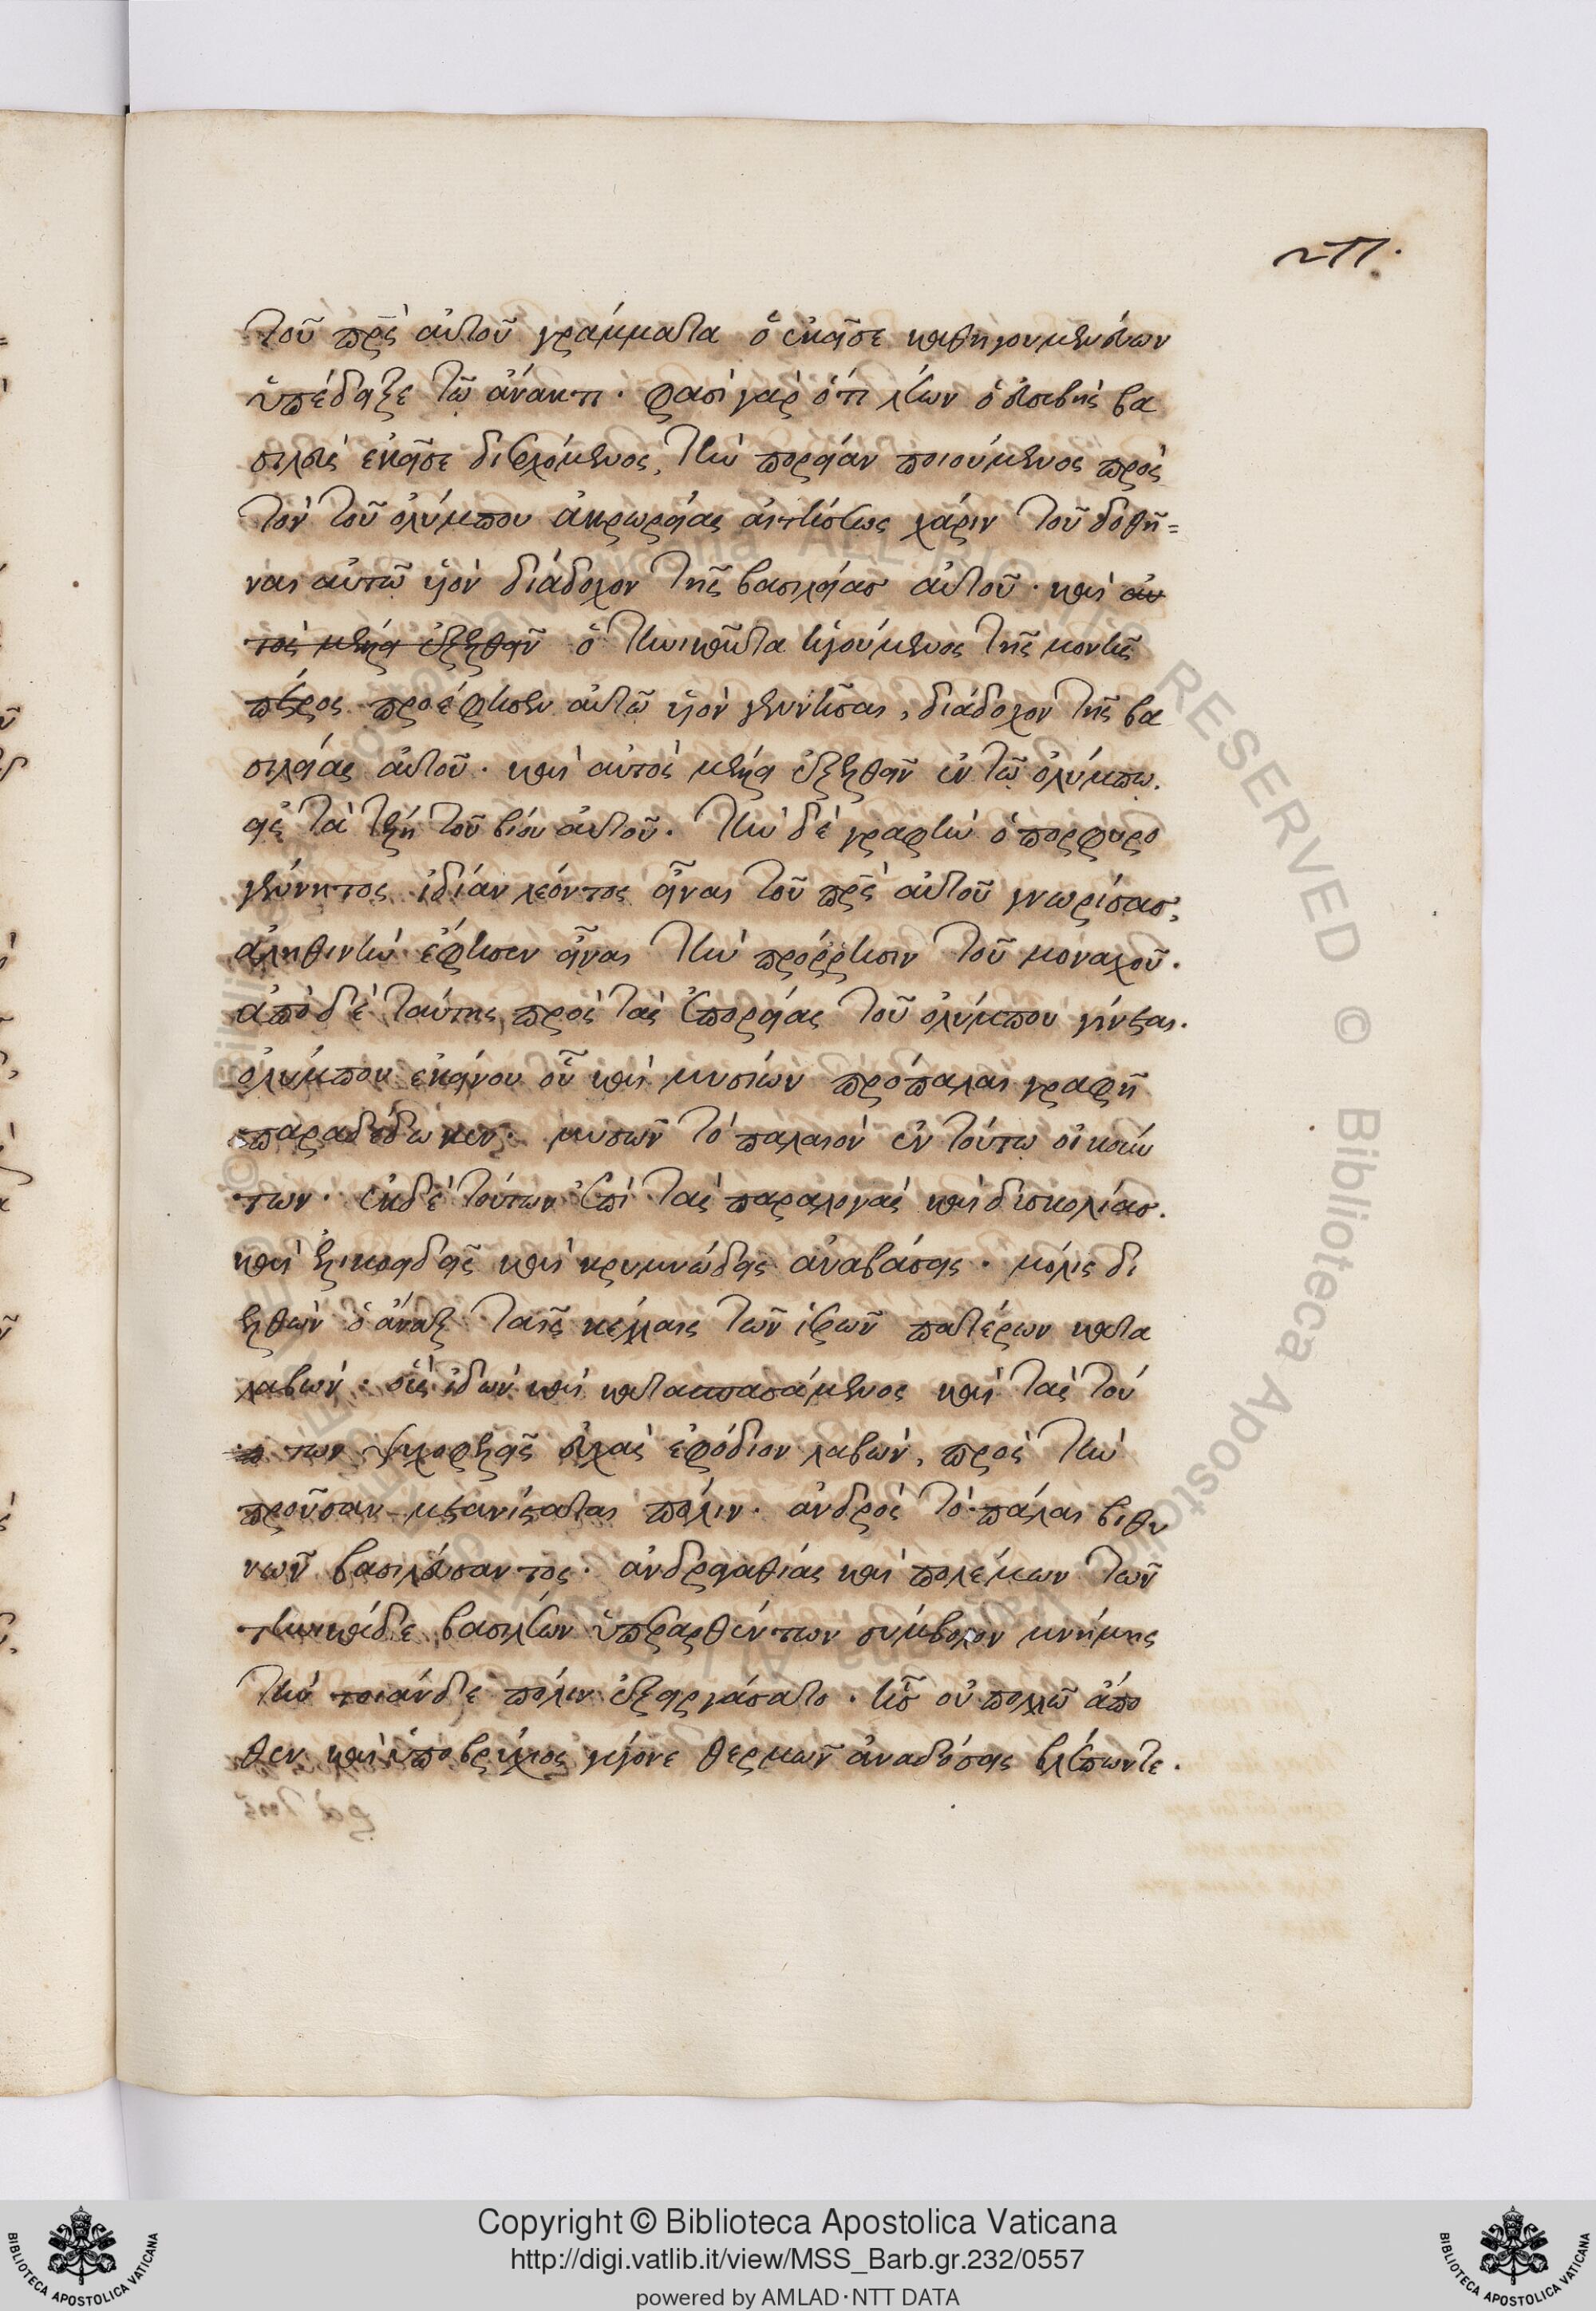 σπ.
τοῦ πρς αὐτοῦ γράμματα ὁ ἐκεῖσε καθηγουμενεύων
ὑπέδειξε τῷ ἄνακτι. φασὶ γὰρ ὅτι λέων ὁ εὐσεβὴς βα
σιλεὺς ἐκεῖσε διερχόμενος, τὴν πορείαν ποιούμενος πρὸς
τὸν τοῦ ὀλύμπου ἀκρωρείας χάριν τοῦ δοθῆ=
ναι αὐτῷ υἱὸν διάδοχον τῆς βασιλείας αὐτοῦ. καὶ αυ
τὸς μέλλει ἐξελθεῖν ὁ τηνικαῦτα ἡγούμενος τῆς μονῆς
πέτρος προέφησεν αὐτῷ υἱὸν γεννῆσαι, διάδοχον τῆς βα
σιλείας αὐτοῦ. καὶ αὐτὸς μέλλει ἐξελθεῖν ἐν τῷ ὀλύμπῳ.
εἰς τὰ τέλη τοῦ βίου αὐτοῦ. τὴν δὲ γραφὴν ὁ πορφυρο
γέννητος ἰδίαν λέοντος εἶναι τοῦ πρς αὐτοῦ γνωρίσας,
ἀληθινὴν ἔφησεν εἶναι τὴν πρόρρησιν τοῦ μοναχοῦ.
ἀπὸ δὲ ταύτης πρὸς τὰς ὑπορείας τοῦ ὀλύμπου γίνεται.
ὀλύμπου ἐκείνου οὗ καὶ μυσίων πρόπαλαι γραφῇ
παραδέδωκεν. μυσῶν τὸ παλαιὸν ἐν τούτῳ οἰκούν
των. ἐκ δὲ τούτων ἐπὶ τὰς παραλογὰς καὶ δυσκολίας.
καὶ ἑλικοειδεῖς καὶ κρυμνώδεις ἀναβάσεις. μόλις δι
ελθὼν ὁ ἄναξ ταῖς κέλλαις τῶν ἱερῶν πατέρων κατα
λαβὼν. οὓς ἰδὼν καὶ κατασπασάμενος καὶ τὰς τού
των ψυχοφελεῖς εὐχὰς ἐφόδιον λαβὼν, πρὸς τὴν
προῦσαν μετανίσταται πόλιν. ἀνδρὸς τὸ πάλαι βιθυ
νῶν βασιλεύσαντος. ἀνδραγαθίας καὶ πολέμων τῶν
τηνικάδε βασιλέων ὑπεραρθέντων σύμβολον μνήμης
τὴν τοιάνδε πόλιν ἐξειργάσατο. ἧς οὐ πολλῷ ἄπο
θεν καὶ ὑποβρύχιος γέγονε θερμῶν ἀναδύσεις βλέπων τε.